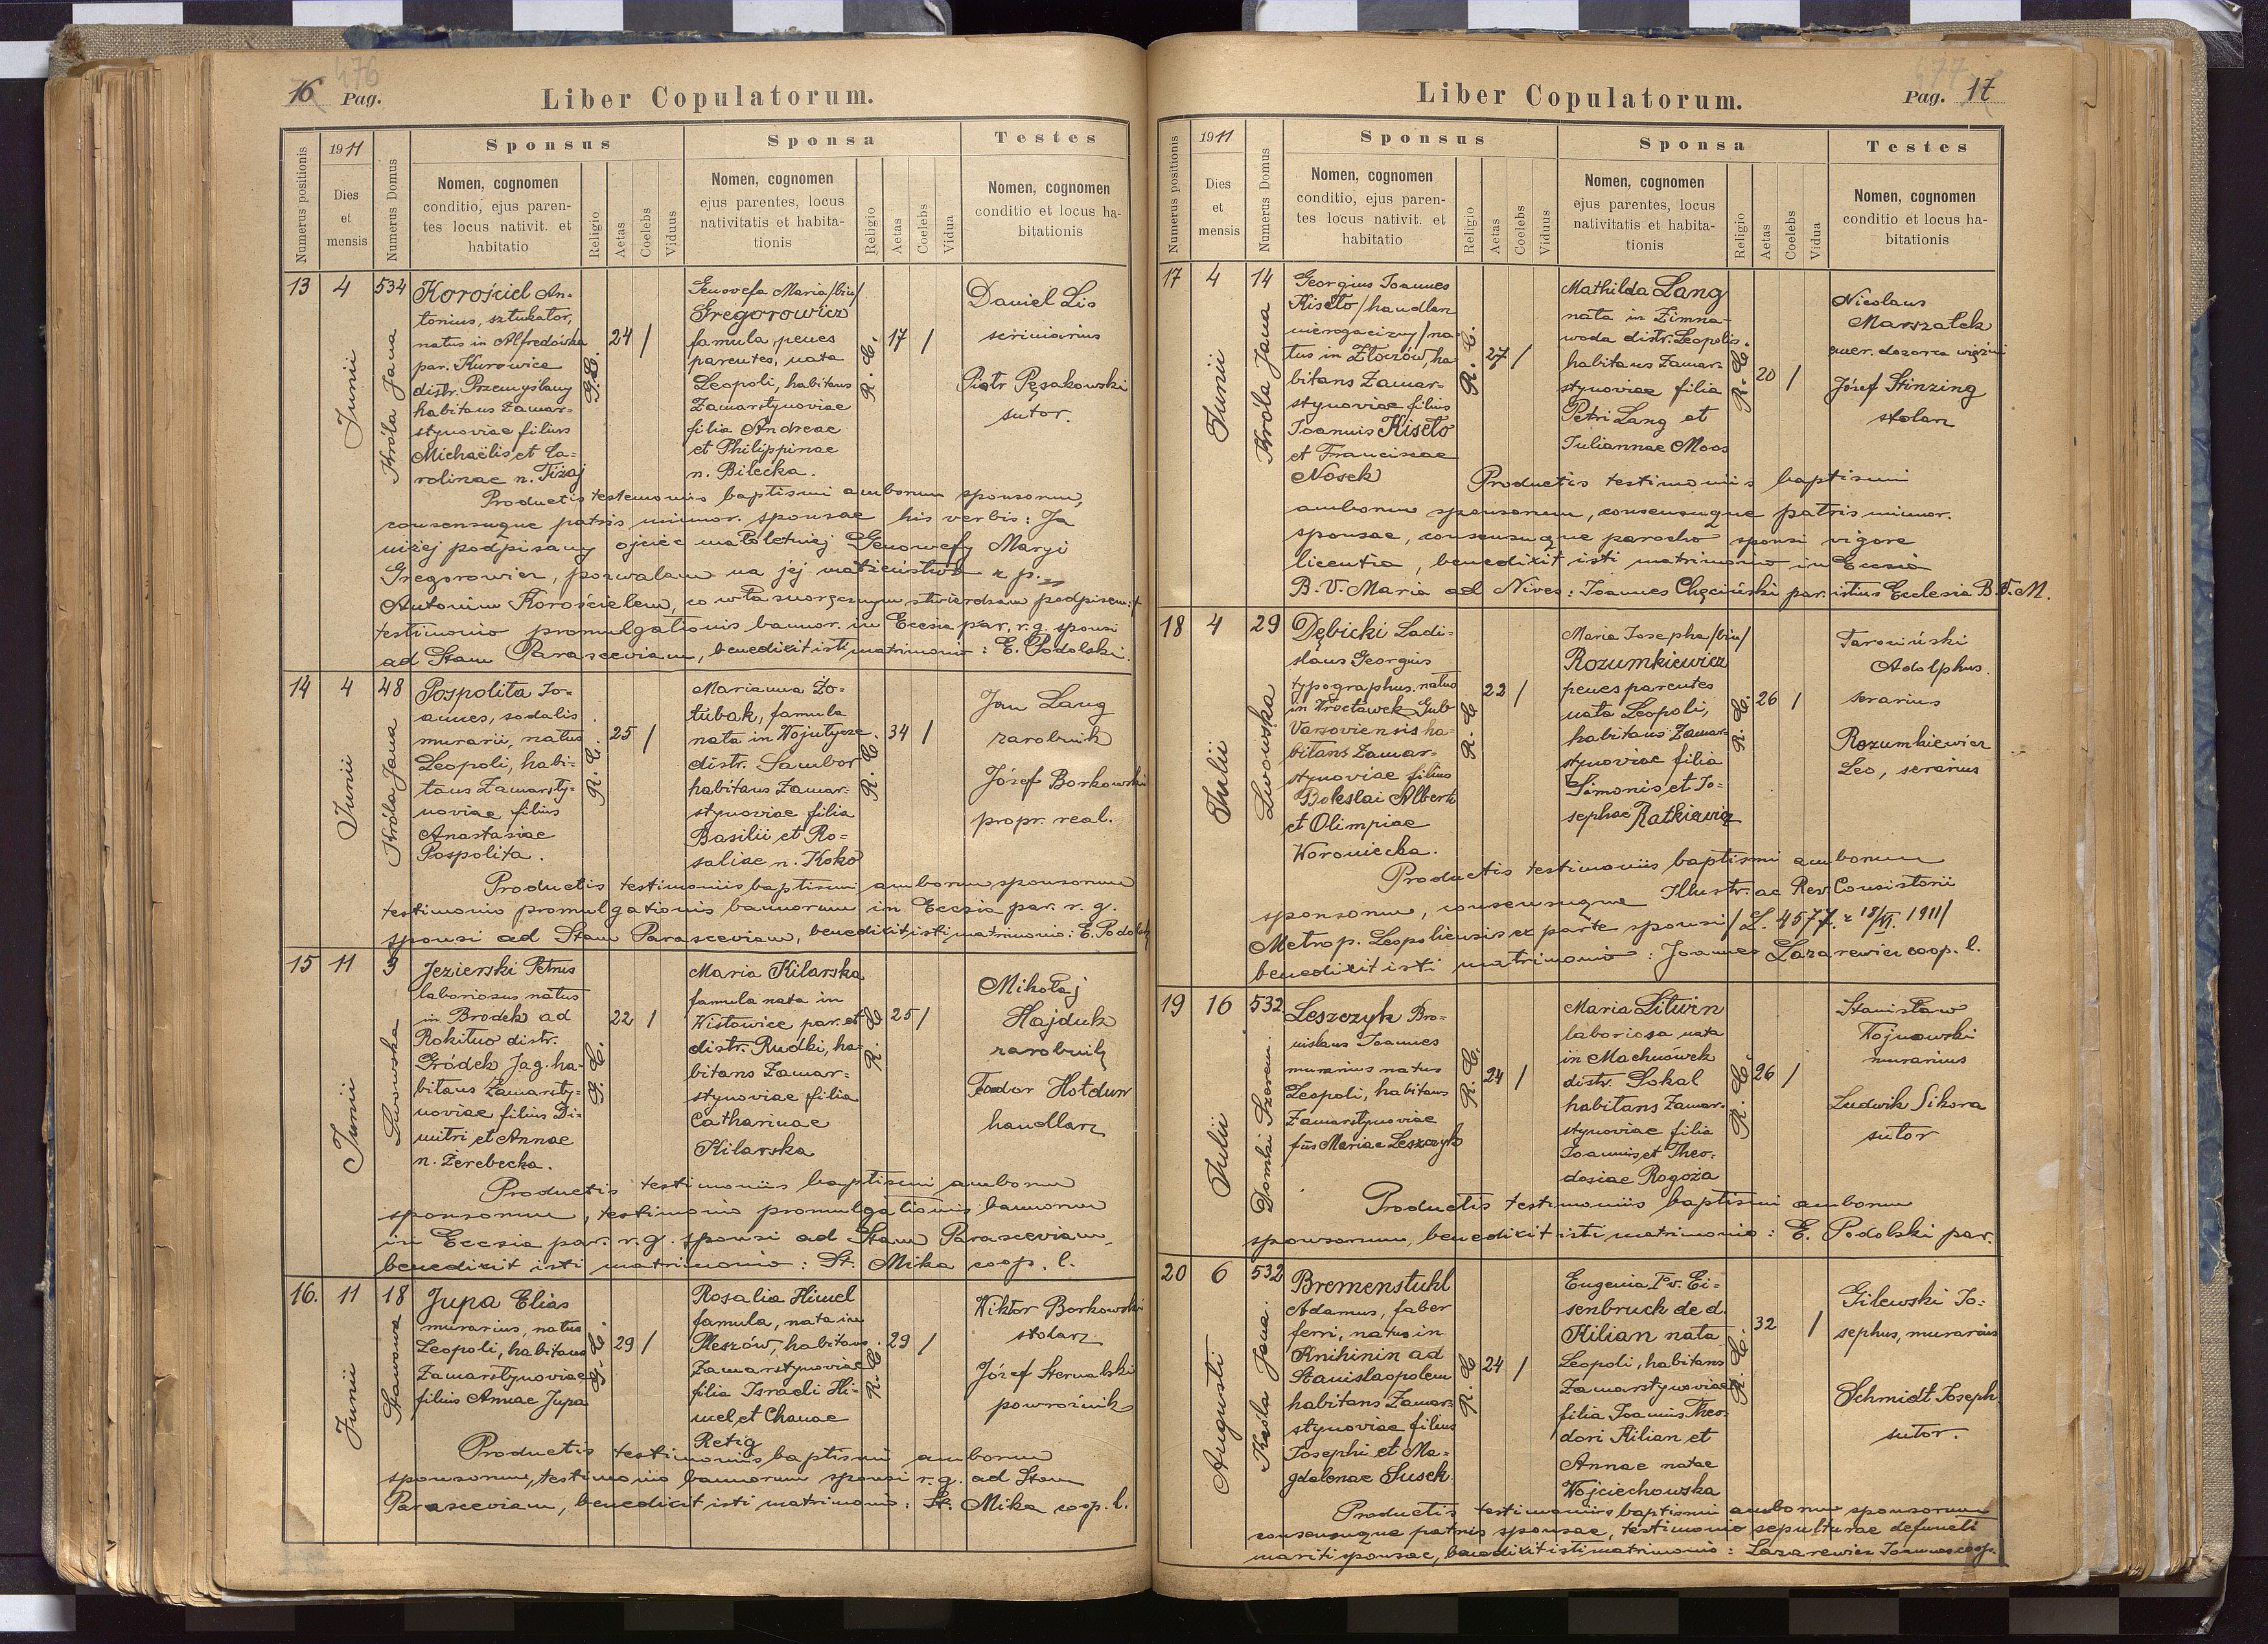 16 Pag.
476
Liber Copulatorum.
Numerus positionis
1911
Dies
et
mensis
Numerus Domus
Sponsus
Nomen, cognomen
conditio, ejus paren-
tes locus nativit. et
habitatio
Religio
Aetas
Coelebs
Viduus
Sponsa
Nomen, cognomen
ejus parentes, locus
nativitatis et habita-
tionis
Religio
Aetas
Coelebs
Vidua
Testes
Nomen, cognomen
conditio et locus ha-
bitationis
13
4
Junii
534
Króla Jana
Korościel An-
tonius, sztukator,
natus in Alfredówka
par. Kurowice
distr. Przemyślany
habitans Zamar=
stynoviae filius
Michaëlis et Ca=
rolinae n. Tizaj
G. C.
24
/
Genovefa Maria /bin/
Gregorowicz
famula, penes
parentes, nata
Leopoli, habitans
Zamarstynoviae
filia Andreae
et Philippinae
n. Bilecka.
R. C.
17
/
Daniel Lis
scriniarius
Piotr Pęsakowski
sutor.
Productis testemoniis baptismi amborum sponsorum,
consensuque patris minor. sponsae his verbis: Ja
niżej podpisany ojciec małoletniej Genowefy Maryi
Gregorowicz, pozwalam na jej małżeństwo z p.
Antonim Korościelem, co własnoręcznym stwierdzam podpisem: +
testimonio promulgationis bannor. in Eccsia par. r. g. sponsi
ad Stam Parasceviam, benedixit isti matrimonio: E. Podolski.
14
4
Junii
48
Króla Jana
Pospolita Jo-
annes, sodalis
murarii, natus
Leopoli, habi-
tans Zamarsty-
noviae filius
Anastasiae
Pospolita.
R. C.
25
/
Marianna Żo-
łubak, famula
nata in Wojutycze
distr. Sambor
habitans Zamar-
stynoviae filia
Basilii et Ro-
saliae n. Koko
R. C.
34
/
Jan Lang
zarobnik
Józef Borkowski
propr. real.
Productis testimoniis baptismi amborum sponsorum
testimonio promulgationis bannorum in Eccsia par. r. g.
sponsi ad Stam Parasceviam, benedixit isti matrimonio: E. Podolski
15
11
Junii
3
Lwowska
Jezierski Petrus
laboriosus natus
in Brodek ad
Rokitno distr.
Gródek Jag. ha-
bitans Zamarsty-
noviae filius Di-
mitri et Annae
n. Żerebecka.
G. C.
22
/
Maria Kilarska
famula nata in
Wistowice par. et
distr. Rudki, ha-
bitans Zamar-
stynoviae filia
Catharinae
Kilarska
R. C.
25
/
Mikołaj
Hajduk
zarobnik
Teodor Hołdun
handlarz
Productis testimoniis baptismi amborum
sponsorum, testimonio promulgationis bannorum
in Eccsia par. r. g. sponsi ad Stam Parasceviam,
benedixit isti matrimonio: St. Mika coop. l.
16.
11
Junii
18
Stawowa
Jupa Elias
murarius, natus
Leopoli, habitans
Zamarstynoviae
filius Annae Jupa
G. C.
29
/
Rosalia Himel
famula, nata in
Pleszów, habitans
Zamarstynoviae
filia Israeli Hi-
mel et Chanae
Retig
R. C.
29
/
Wiktor Borkowski
stolarz
Józef Sternalski
powroźnik
Productis testimoniis baptismi amborum
sponsorum, testimonio bannorum sponsi r. g. ad Stam
Parasceviam, benedixit isti matrimonio: St. Mika coop. l.
Liber Copulatorum.
477
Pag. 17
Numerus positionis
1911
Dies
et
mensis
Numerus Domus
Sponsus
Nomen, cognomen
conditio, ejus paren-
tes locus nativit. et
habitatio
Religio
Aetas
Coelebs
Viduus
Sponsa
Nomen, cognomen
ejus parentes, locus
nativitatis et habita-
tionis
Religio
Aetas
Coelebs
Vidua
Testes
Nomen, cognomen
conditio et locus ha-
bitationis
17
4
Junii
14
Króla Jana
Georgius Joannes
Kiseło /handlarz
nierogacizny/ na
tus in Złoczów, ha
bitans Zamar-
stynoviae filius
Joannis Kisełó
et Franciscae
Nosek
R. C.
27
/
Mathilda Lang
nata in Zimna-
woda distr. Leopolis.
habitans Zamar-
stynoviae filia
Petri Lang et
Juliannae Moos
R. C.
20
/
Nicolaus
Marszałek
emer. dozorca więźni
Józef Stinzing
stolarz
Productis testimoniis baptismi
amborum sponsorum, consensuque patris minor.
sponsae, consensuque parocho sponsi vigore
licentia, benedixit isti matrimonio in Eccsia
B. V. Maria ad Nives: Joannes Chęciński par. istius Ecclesia B. V. M.
18
4
Julii
29
Lwowska
Dębicki Ladi-
slaus Georgius
typographus, natus
in Wrocławek Gub
Varsoviensis ha-
bitans Zamar-
stynoviae filius
Boleslai Alberti
et Olimpiae
Woroniecka.
R. C.
22
/
Maria Josepha /bin/
Rozumkiewicz
penes parentes
nata Leopoli,
habitans Zamar-
stynoviae filia
Simonis et Jo-
sephae Ratkiewicz
R. C.
26
/
Tarowiński
Adolphus.
serarius
Rozumkiewicz
Leo, serarius
Productis testimoniis baptismi amborum
sponsorum, consensuque Illustr. ac Rev. Consistorii
Metrop. Leopoliensis ex parte sponsi /L. 4577. z 18/VI. 1911/
benedixit isti matrimonio: Joannes Lazarewicz coop. l.
19
16
Julii
532
Domki Szerem.
Leszczyk Bro-
nislaus Joannes
murarius natus
Leopoli, habitans
Zamarstynoviae
fius Mariae Leszczyk
R. C.
24
/
Maria Litwin
laboriosa nata
in Machnówek
distr. Sokal
habitans Zamar-
stynoviae filia
Joannis et Theo-
dosiae Rogoża
R. C.
26
/
Stanisław
Wojnowski
murarius
Ludwik Sikora
sutor
Productis testimoniis baptismi amborum
sponsorum, benedixit isti matrimonio: E. Podolski par.
20
6
Augusti
532
Króla Jana
Bremenstuhl
Adamus, faber
ferri, natus in
Knihinin ad
Stanislaopolem
habitans Zamar-
stynoviae filius
Josephi et Ma-
gdalenae Susek.
R. C.
24
/
Eugenia Iv. Ei-
senbruck de d.
Kilian nata
Leopoli, habitans
Zamarstynoviae
filia Joannis Theo-
dori Kilian et
Annae natae
Wojciechowska
R. C.
32
/
Gilewski Jo-
sephus, murarius
Schmidt Joseph
sutor.
Productis testimoniis baptismi amborum sponsorum
consensuque patris sponsae, testimonio sepulturae defuncti
mariti sponsae, benedixit isti matrimonio: Lazarewicz Joannes coop.